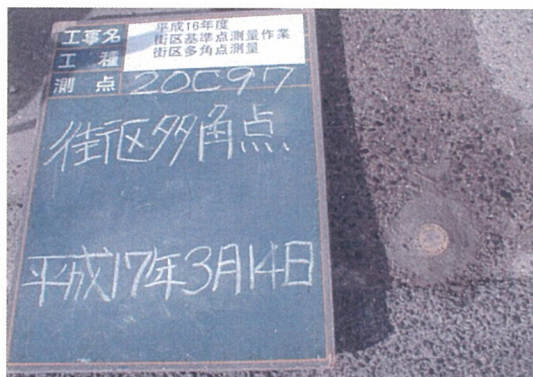 工事名 平成16年度
街区基準点測量作業
工種 街区多角点測量
測点 20C97
街区多角点
平成17年3月14日